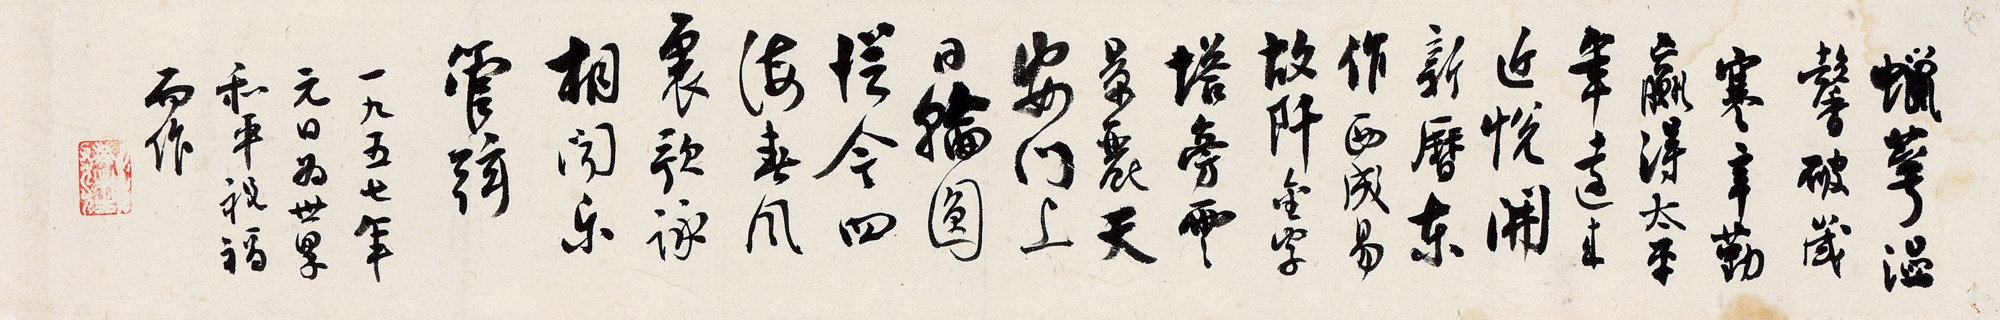 蠟萼温
馨破歲
寒辛勤
贏得太平
年遠来
近悅開
新曆东
作西成易
故阡金字
塔旁雲
景麗天
安门上
日輪圓
從今四
海春风
裏歌詠
相闻乐
管弦
一九五七年
元日为世界
和平祝福
而作